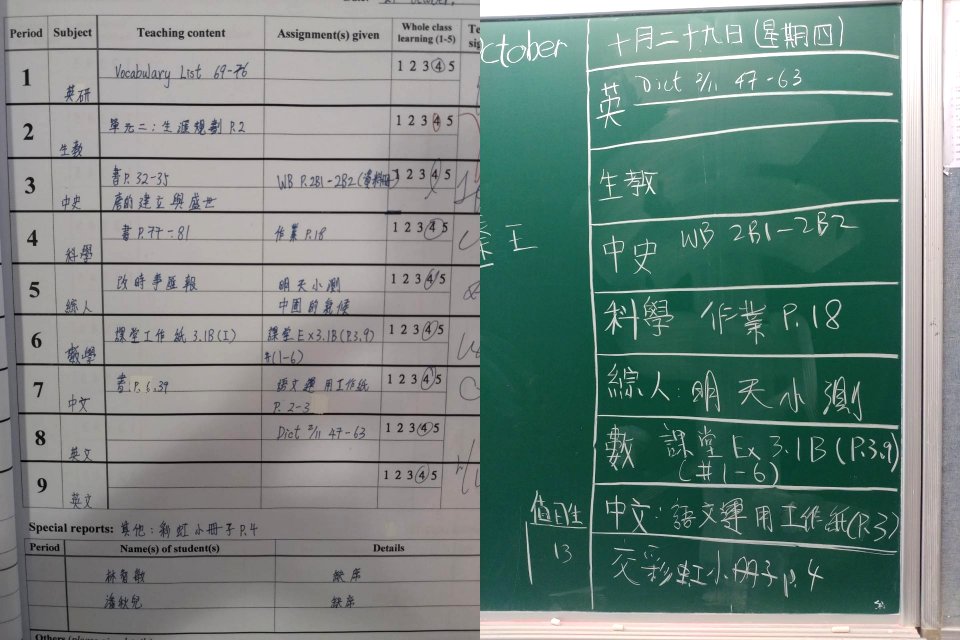 Period Subject Teaching content Assignment(s) given Whole class learning (1-5)
1 英研 Vocabulary List 69-76 1 2 3 4 5
2 生教 單元二：生涯規劃 P.2 1 2 3 4 5
3 中史 書P.32-35 WB P.2B1-2B2 1 2 3 4 5
唐的建立與盛世
4 科學 書P.77-81 作業P.18 1 2 3 4 5
5 綜人 改時事匯報 明天小測 1 2 3 4 5
中國的氣候
6 數學 課堂工作紙 3.1B(I) 課堂Ex3.1B(P.3,9) 1 2 3 4 5
#(1-6)
7 中文 書P.6,39 語文運用工作紙 1 2 3 4 5
P.2-3
8 英文 Dict 3/11 47-63 1 2 3 4 5
9 英文 1 2 3 4 5
Special reports: 其他：彩虹小冊子P.4
Period Name(s) of student(s) Details
林智敏 缺席
潘秋兒 缺席
Others
ctober
十月二十九日(星期四)
英 Dict 3/11 47-63
生教
中史 WB 2B1-2B2
科學 作業 P.18
綜人：明天小測
數 課堂 Ex 3.1B (P.3,9)
(#1-6)
中文：語文運用工作紙(P.3)
交彩虹小冊子p.4
值日生
13